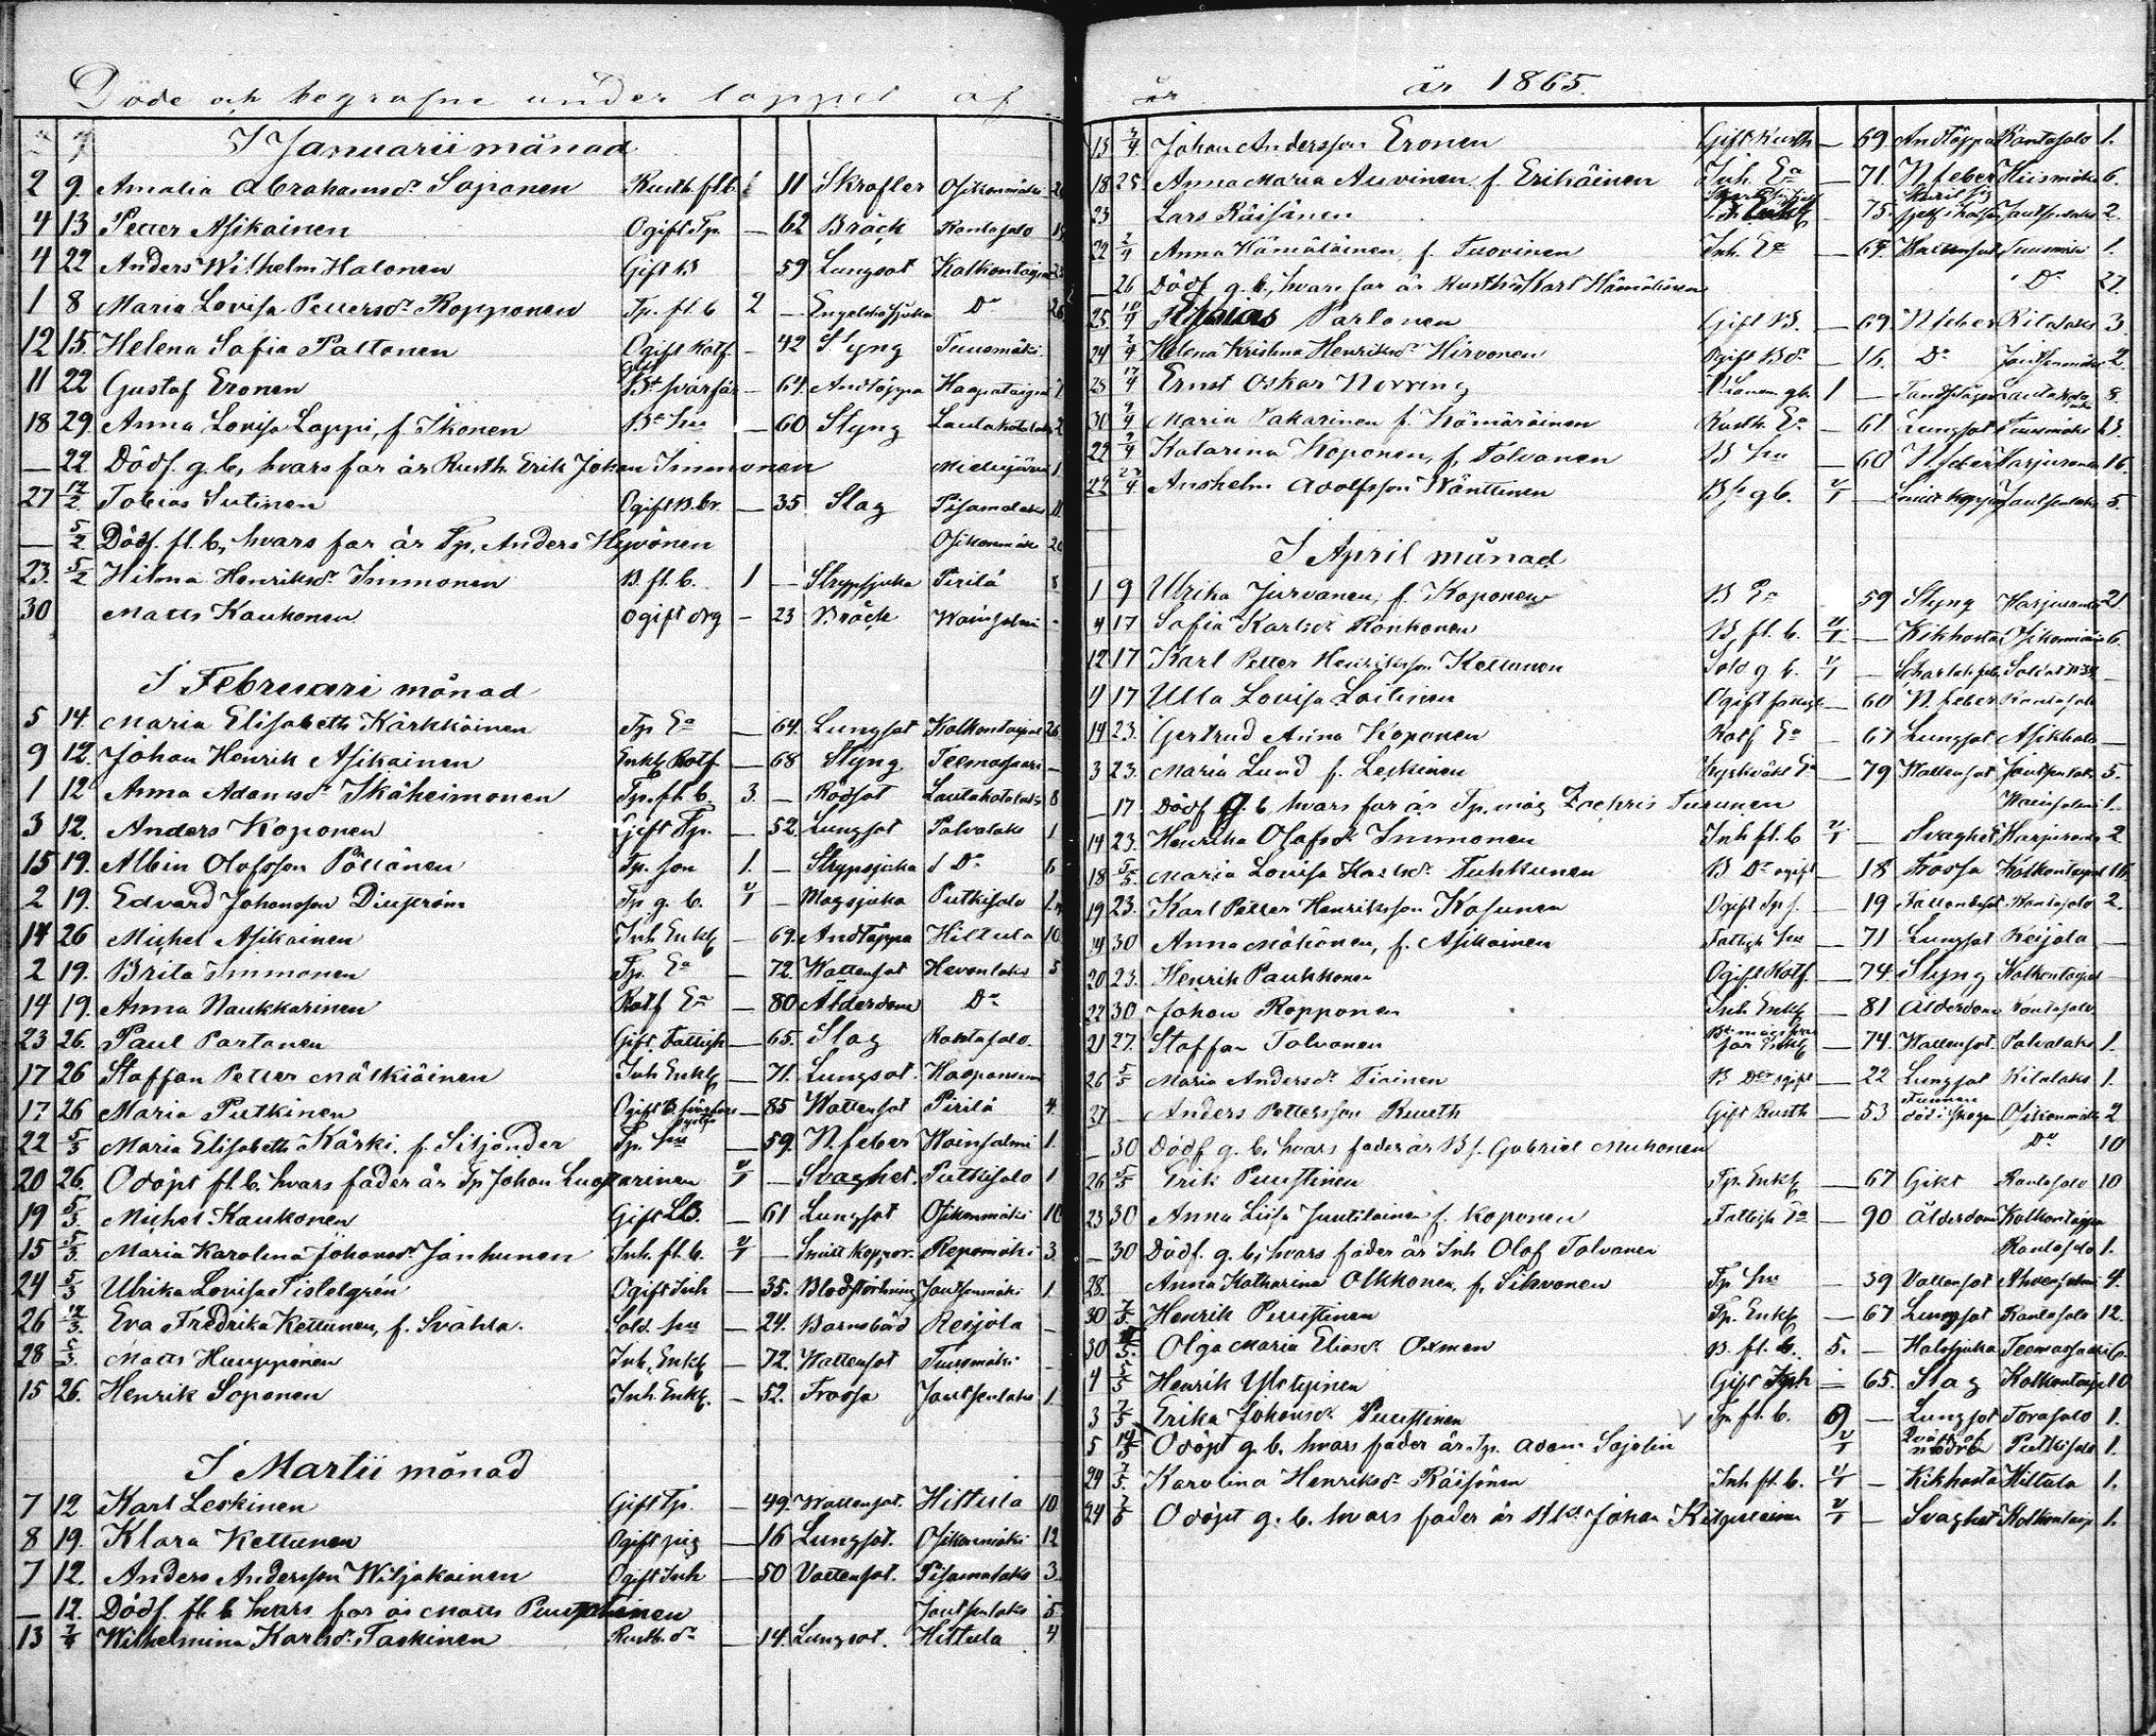 Döde och begrafne under loppet af
I Januarii månad
2 9. Amalia Abrahamsdr Soponen Rusth. fl.b. 11 Skrofler Osikonmäki
4 13 Petter Asikainen Ogift Tp. — 62 Bräck Rantasalo
4 22 Anders Wilhelm Halonen Gift B 59 Lungsot Kolkontaipal
1 8 Maria Lovisa Pettersdr Ropponen Tp. fl. b 2 — Engelska sjuka Do
12 15. Helena Sofia Paltonen Ogift Rotf. — 42 Styng Tuusmäki
11 22 Gustaf Eronen Bs svärfar — 64 Andtäppa Haapataipal 7
18 29. Anna Lovisa Lappi, f. Ikonen Bs hu — 60 Styng Lautakotalaks 2
— 22. Dödf. g. b, hvars far är Rusth. Erik Johan Immonen 1
27 12/2 Tobias Sutinen Ogift B. br. — 35 Slag Pisamalaks 11
— 5/2 Dödf. fl. b, hvars far är Tp. Anders Hyvönen Osikonmäki
23. 5/2 Hilma Henriksdr Immonen B. fl. b. 1 — Strypsjuka Pirilä 8
30 Matts Kaukonen Ogift drg — 23 Bräck Wainsalmi -
I Februari månad
5 14. Maria Elisabeth Kärkkäinen Tp Ea — 64. Lungsot Kolkontaipal 26
9 12. Johan Henrik Asikainen Enkl Rotf — 68 Styng Teemassaari —
1 12 Anna Adamsdr Ikäheimonen Tp. fl. b. 3. — Rödsot Lautakotalaks 8
3 12. Anders Koponen Gift Tp. — 52. Lungsot Palvalaks 1
15 19. Albin Olofsson Pöllänen Tp. son 1. — Strypsjuka Do 6
2 19. Edvard Johansson Tp g. b. 1/1 — Magsjuka Putkisalo 1.
14 26 Michel Asikainen Inh Enkl — 69. Andtäppa Hiltula 10
2 19. Brita Immonen Tp. Ea — 72. Wattensot Hevonlaks 5
14 19. Anna Naukkarinen Rotf Ea — 80 Ålderdom Do
23 26. Paul Partanen Gift. Fattigh — 65. Slag Rantasalo
17 26 Staffan Petter Mälkiäinen Inh Enkl — 71. Lungsot. Haapaniemi
17 26 Maria Putkinen Ogift B. svärfars syster — 85 Wattensot Pirilä 4
22 5/3 Maria Elisabeth Kärki. f. Siljander Tp. hu — 59. N. feber Wainsalmi 1.
20 26. Odöpt fl. b. hvars fader är Tp Johan Luostarinen 1/1 — Svaghet. Putkisalo 1
19 5/3. Michel Kaukonen Gift LB. — 61 Lungsot Osikonmäki 10
15 5/3 Maria Karolina Johansdr Janhunen Inh. fl. b. 1/1 — Smitt koppor. Repomäki 3
24 5/3 Ulrika Lovisa Tistelgrén Ogift Inh — 35. Blodstörtning Joutsenmäki 1
26 12/3. Eva Fredrika Kettunen, f. Svähla. Sold. hu — 24. Barnsbörd Reijola —
28 5/3. Matts Huupponen Inh. Enkl — 72. Wattensot Tuusmäki -
15 26. Henrik Soponen Inh Enkl. — 52. Frossa Joutsenlaks 1.
I Martii månad
7 12 Karl Leskinen Gift Tp. — 49. Wattensot. Hiltula 10
8 19. Klara Kettunen Ogift pig — 16 Lungsot. Osikonmäki 12
7 12. Anders Andersson Wiljakainen Ogift Inh — 50 Vattensot. Pisamalaks 3
— 12. Dödf. fl. b hvars far är Matts Puustinen Joutsenlaks 5
13 2/4 Wilhelmina Karlsdr Taskinen Rusth. dr — 14. Lungsot. Hiltula 4
år 1865.
15 2/4 Johan Andersson Eronen Gift Rusth — 69 Andtäppa Rantasalo 1.
18 25. Anna Maria Auvinen f. Erikäinen Inh. Ea — 71. N. feber Hiismäki 6.
23 Lars Räisänen — 75. Joutsenlaks 2.
22 2/4 Anna Hämäläinen f. Tuovinen Inh. Ea — 64. Wattensot Tuusmäki 1.
— 26 Dödf. g. b., hvars far är Rusth. Karl Hämäläinen Do 27.
25. 10/4 Partanen Gift B. — 69 N feber Ritolaks 3.
24 2/4 Helena Kristina Henriksdr Hirvonen Ogift B dr — 16. Do Joutsenmäki 2.
25 17/4 Ernst Oskar Norring gb. 1 — 8.
30 9/4 Maria Pakarinen f. Hämäräinen Rusth. Ea — 61. Lungsot Tuusmäki 13.
22 2/4 Katarina Koponen, f. Tolvanen B hu — 60 N feber Harjuranta 16.
22 27/4. Anshelm Adolfsson Wänttinen g b. 1/1 — Smitt koppor Joutsenlaks 5.
I April månad
1 9 Ulrika Jurvanen, f. Koponen B Ea 59 Styng Harjuranta 21
4 17 Sofia Karlsdr Ronkonen B, fl. b. 1/1 — Kikhosta Osikonmäki 6.
12 17 Karl Petter Henriksson Kettunen Sold g. b. 1/1 — Scharlak. feb. Soldat —
4 17 Ulla Lovisa Laitinen Ogift fattigh — 60 N. feber Rantasalo
14 23. Gertrud Anna Koponen Rotf Ea — 67 Lungsot Asikkala —
3 23. Maria Lund f. Leskinen Kyrkväkt Ea — 79 Wattensot Joutsenlaks 5.
— 17. Dödf g. b hvars far är Tp. måg Zachris Turunen Wainsalmi 1.
14 23. Henrika Olofsdr Immonen Inh fl. b 1/1 — Svaghet Harjuranta 2
18 5/5. Maria Lovisa Karlsdr Tuhkunen B Dr ogift — 18 Frossa Kolkontaipal 11.
19 23. Karl Petter Henriksson Kosunen Ogift Tp s. — 19 Fallandesot Rantasalo 2.
14 30 Anna Mähönen, f. Asikainen Fattigh hu — 71 Lungsot Reijola —
20 23. Henrik Paukkonen Ogift Rotf. — 74. Styng Kolkontaipal —
22 30 Johan Ropponen Inh Enkl — 81 Ålderdom Rantasalo
21 27. Staffan Tolvanen far Enkl — 74. Wattensot. Palvalaks 1.
26 5/5 Maria Andersdr Tiainen B Dr ogift — 22 Lungsot Ritolaks 1.
27 — Anders Pettersson Ruuth Gift Rusth — 53 Funnen död i skogen Osikonmäki 2
— 30 Dödf g. b, hvars fader är B s. Gabriel Muhonen Do 10
26 5/5 Erik Puustinen Tp. Enkl — 67 Gikt Rantasalo 10
23 30 Anna Liisa Juutilainen f. Koponen Fattigh Ea — 90 Ålderdom Kolkontaipal
— 30 Dödf. g. b, hvars fader är Inh Olof Tolvanen Rantasalo 1.
28. Anna Katharina Olkkonen, f. Sihvonen Tp hu — 39 Vattensot Ahvensalmi 4.
30 7/5 Henrik Puustinen Tp. Enkl — 67 Lungsot Rantasalo 12.
30 5. Olga Maria Eliasdr Oxman B. fl. b. 5. — Halssjuka Teemassaari 6.
4 5/5 Henrik Yletyinen Gift Inh — 65. Slag Kolkontaipal 10
3 7/5 Erika Johansdr Puustinen Tp. fl. b. 9 — Lungsot Torasalo 1.
5 14/5 Odöpt g. b. hvars fader är Tp. Adam Sojolin 1/1 Qväfd af modren Putkisalo 1.
24 7/5. Karolina Henriksdr Räisänen Inh fl. b. 1/1 — Kikhosta Hiltula 1.
24 7/5 Odöpt g. b. hvars fader är Johan 1/1 — Svaghet Kolkontaip 1.